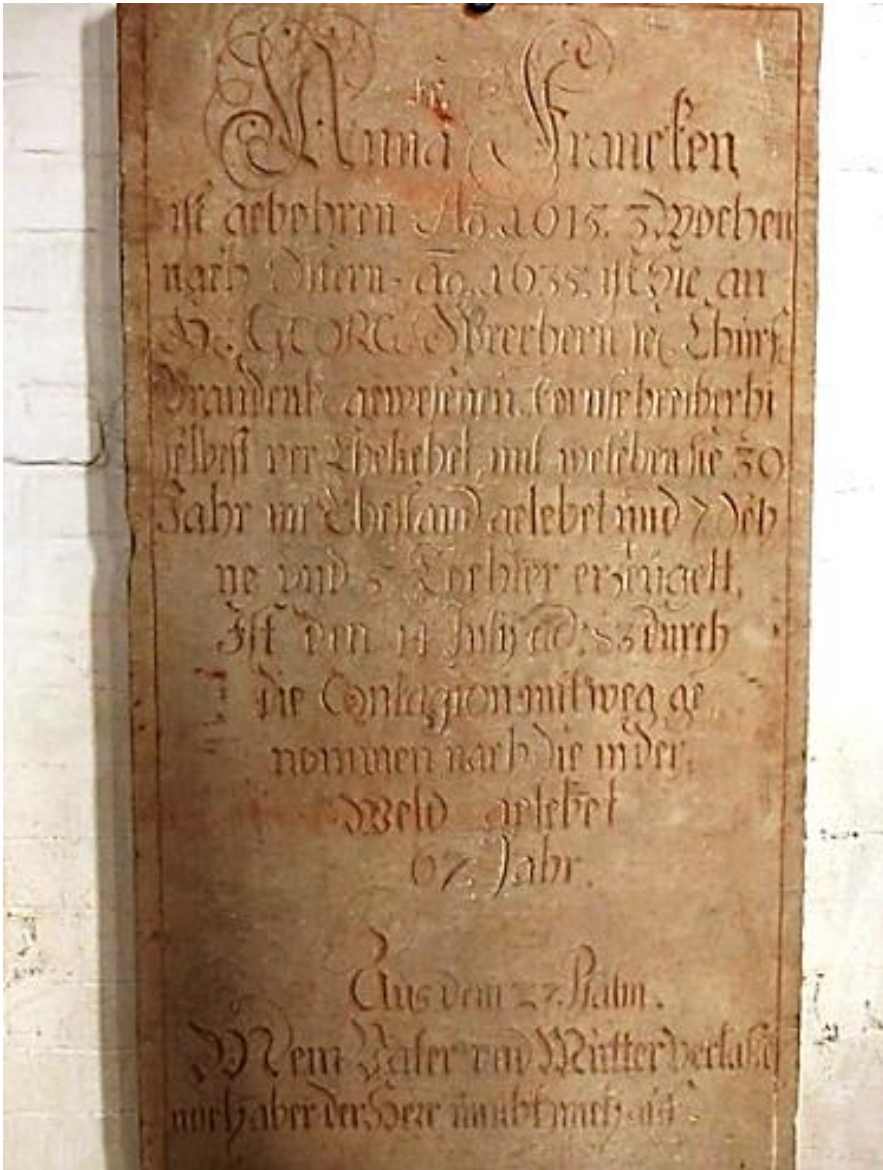 Anna Francken
ist gebohren Ao. 1615. 3 Wochen
nach Ostern. Ao. 1635. ist Sie an
Hr. GEORG Chürf.
Brandenb. gewesenen Cornschreiber hi
selbest ver Ehelichet, mit welchen sie 30
Jahr im Ehestand gelebet und 7 Söh
ne und 5 Töchter erzeüget,
Ist den 14 Julij ao: 83 durch
die Contagion mit weg ge
nommen nach die in der
Weld gelebet
67 Jahr.
Aus dem 27. Psalm.
Mein Vater vnd Mütter verlaßen
mich aber der Herr nimbt mich auf